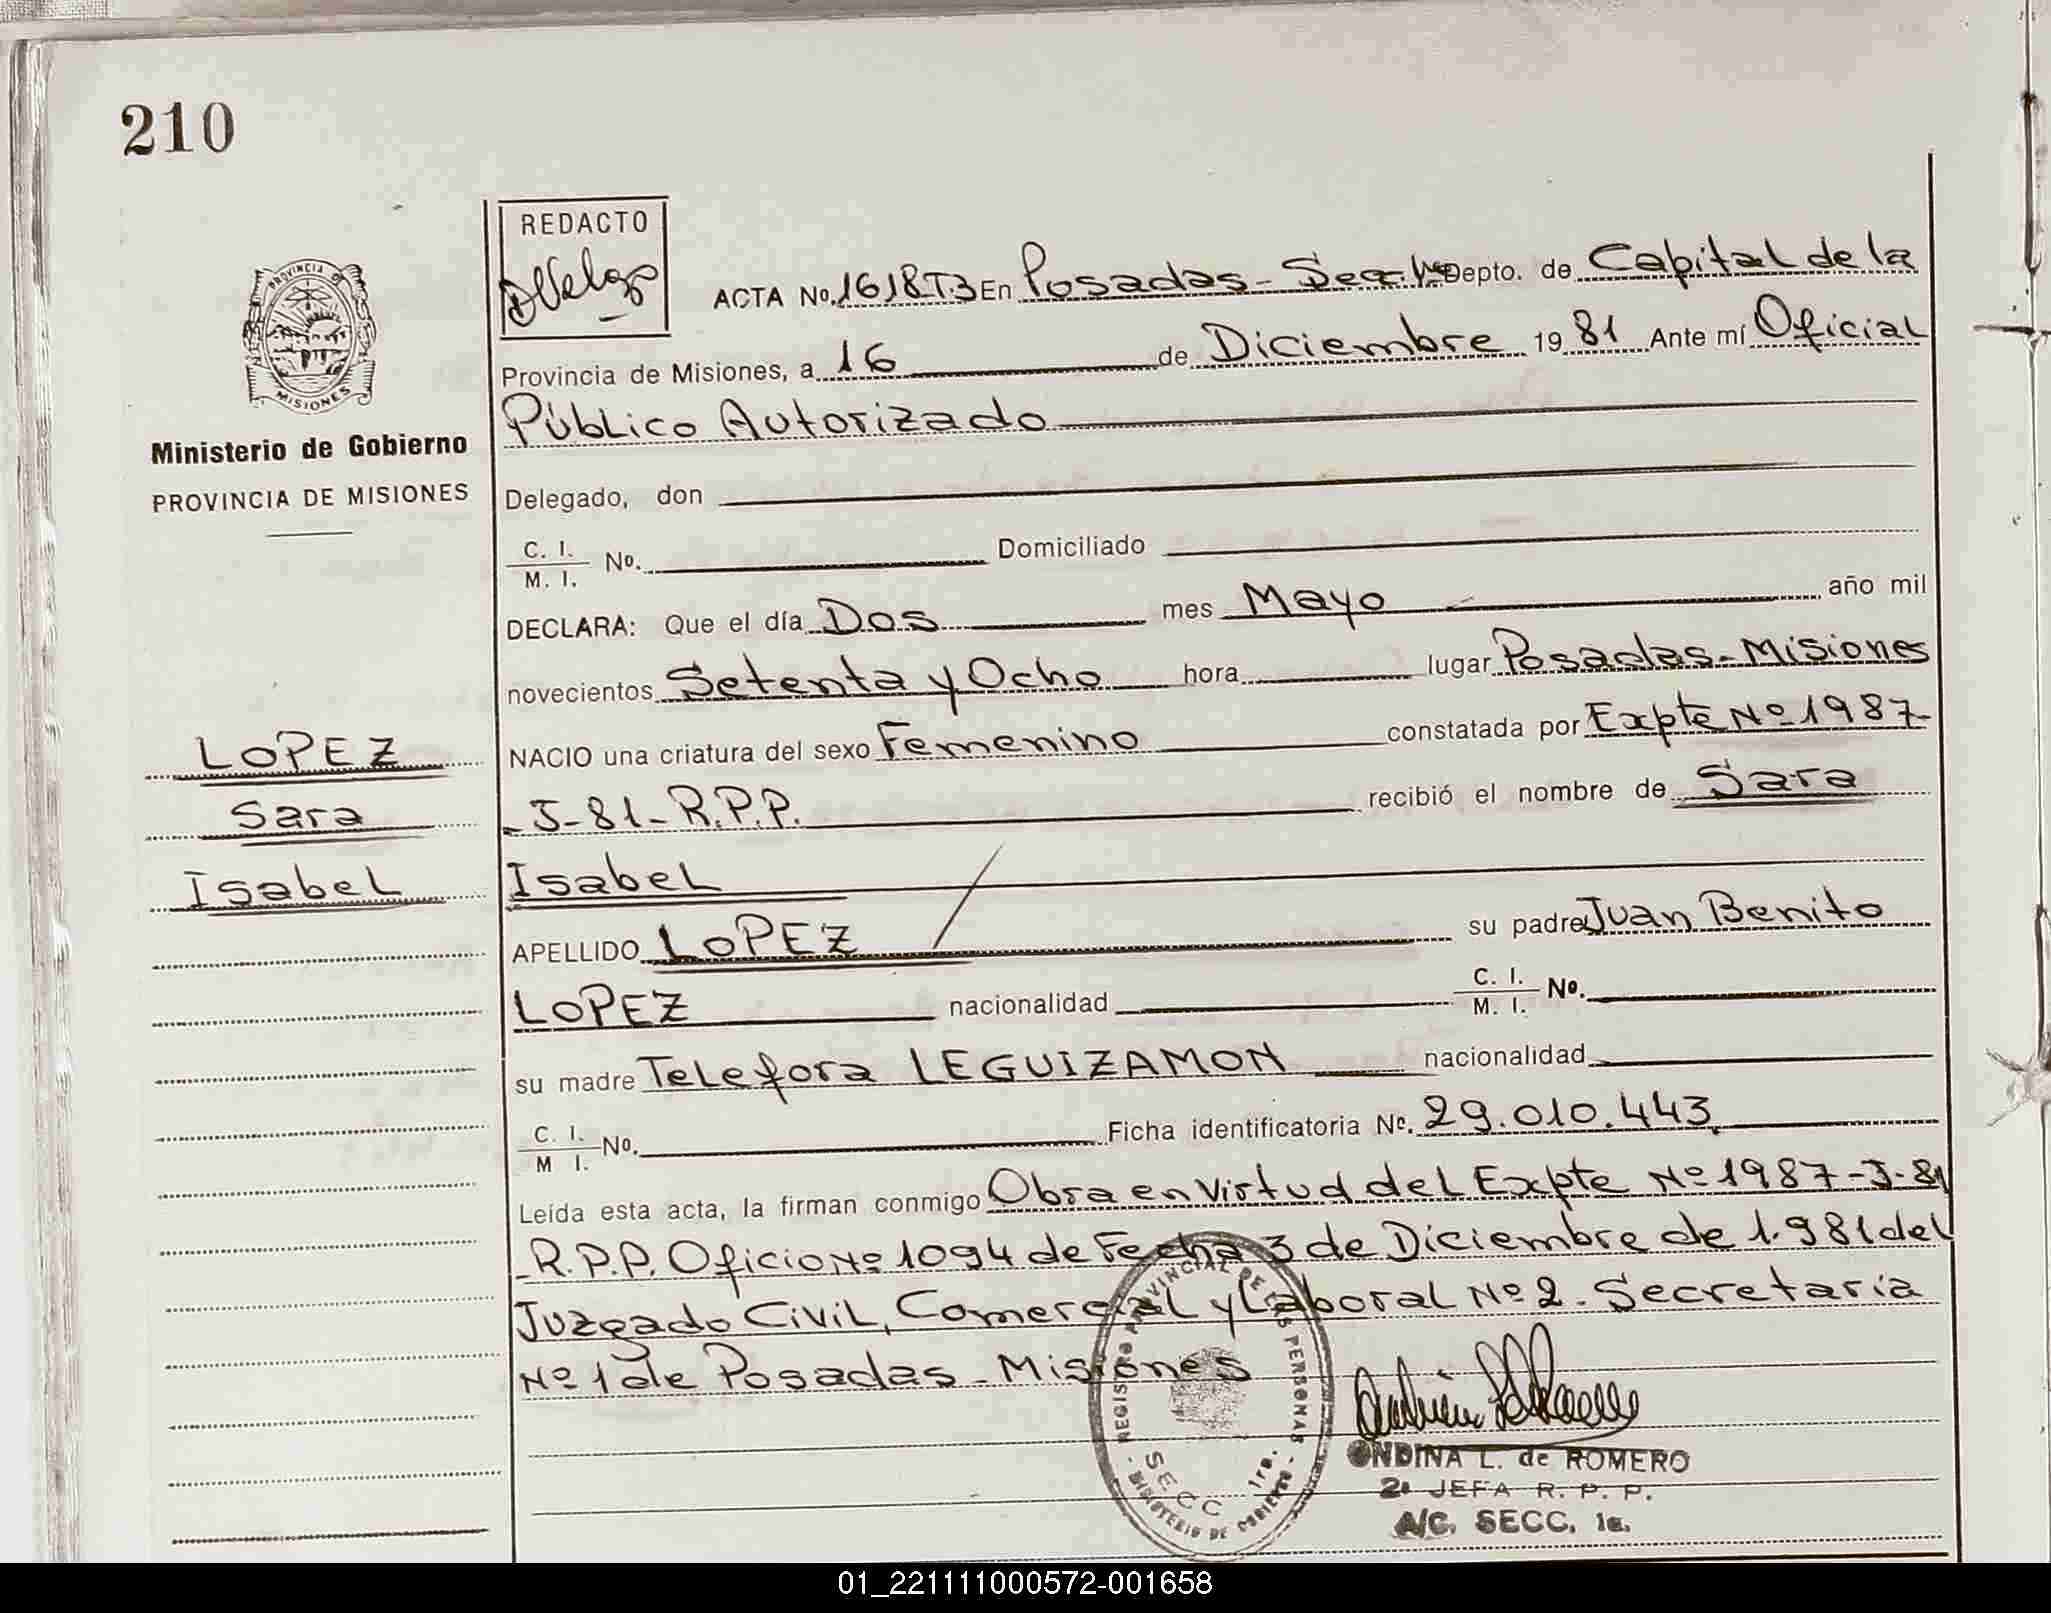 210
REDACTO
PROVINCIA DE
MISIONES
ACTA No. 1618T3 En Posadas - Secc. 1ra Depto. de Capital de la
Provincia de Misiones, a 16 de Diciembre 19 81 Ante mí Oficial
Público Autorizado
Ministerio de Gobierno
PROVINCIA DE MISIONES
Delegado, don
C. I.
M. I. No. Domiciliado
DECLARA: Que el día Dos mes Mayo año mil
novecientos Setenta y Ocho hora lugar Posadas - Misiones
LOPEZ
Sara
Isabel
NACIO una criatura del sexo Femenino constatada por Expte Nº 1987
- J - 81 - R.P.P. recibió el nombre de Sara
Isabel
APELLIDO LOPEZ su padre Juan Benito
LOPEZ nacionalidad C. I. M. I. Nº.
su madre Telefora LEGUIZAMON nacionalidad
C. I. M I. No. Ficha identificatoria Nº. 29.010.443
Leída esta acta, la firman conmigo Obra en Virtud del Expte Nº 1987 - J - 81
- R.P.P. Oficio Nº 1094 de Fecha 3 de Diciembre de 1.981 del
Juzgado Civil, Comercial y Laboral Nº 2. Secretaria
Nº 1 de Posadas - Misiones
REGISTRO PROVINCIAL DE LAS PERSONAS
SECC 1ra.
- MINISTERIO DE GOBIERNO -
ONDINA L. de ROMERO
2a JEFA R. P. P.
A/C. SECC. 1a.
01_221111000572-001658